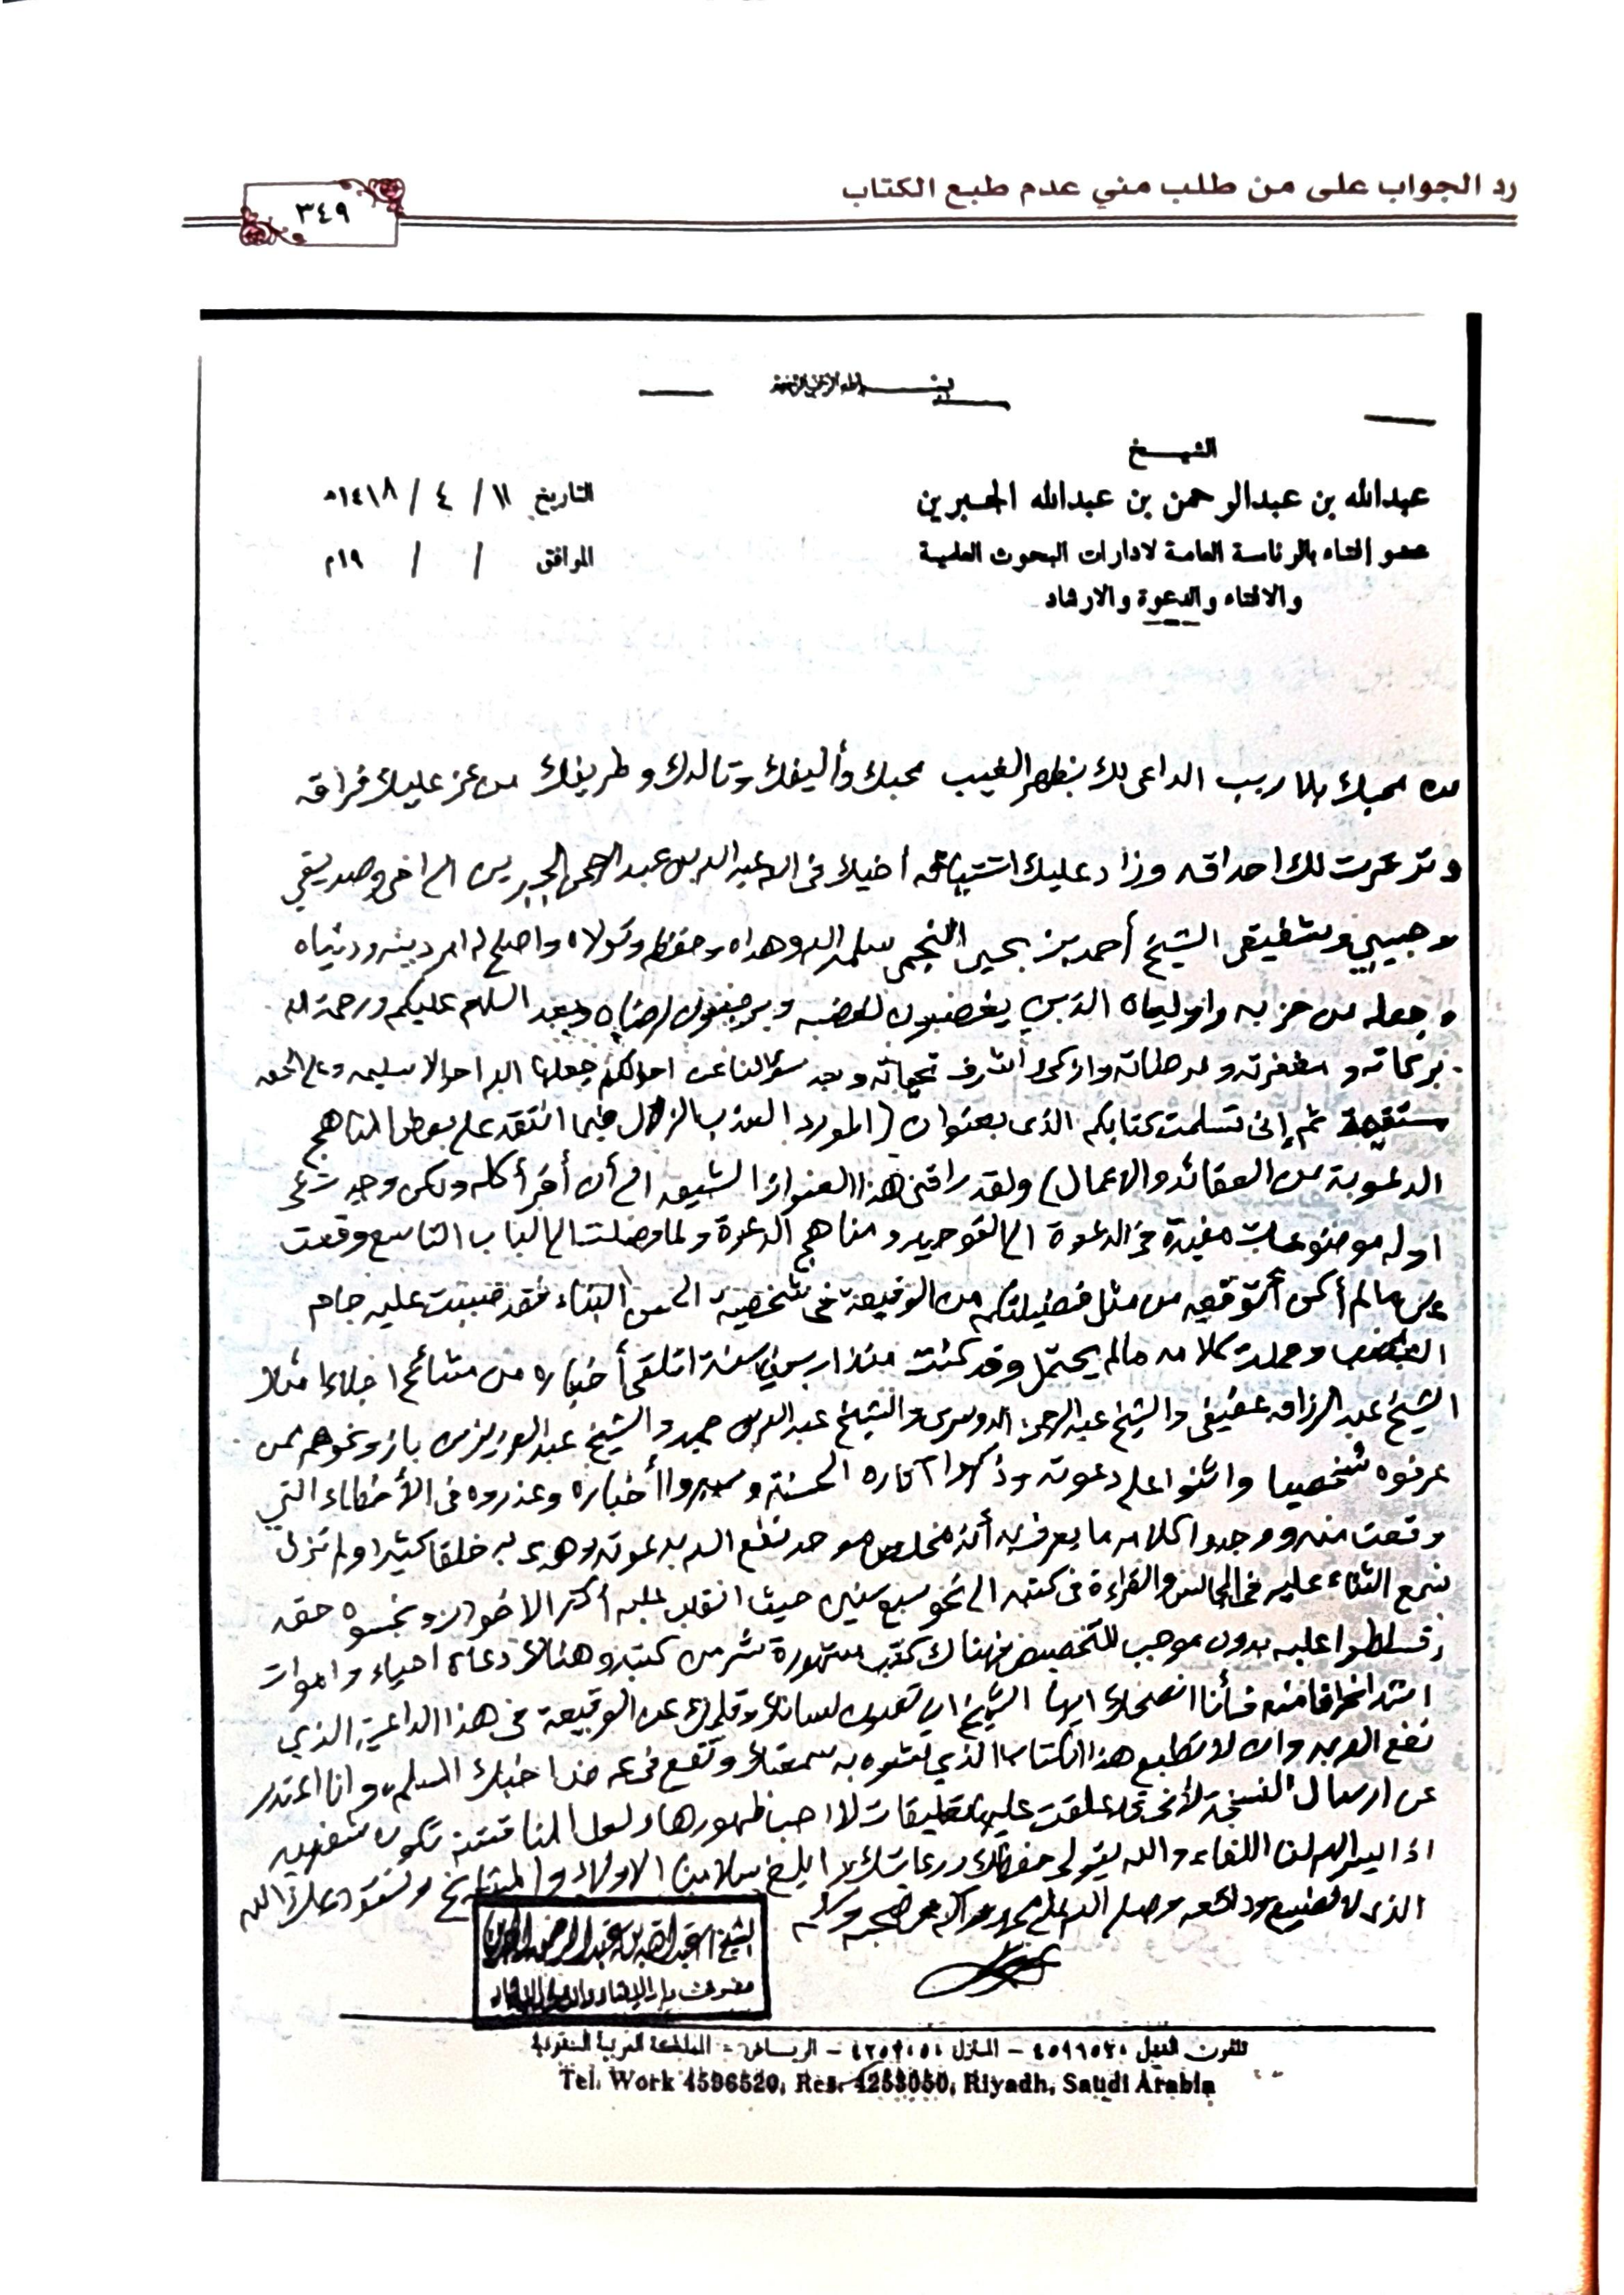 رد الجواب على من طلب مني عدم طبع الكتاب
٣٤٩
الشيخ
عبدالله بن عبدالرحمن بن عبدالله الجبرين
عضو إفتاء بالرئاسة العامة لادارات البحوث العلمية
والافتاء والدعوة والارشاد
التاريخ ١١ / ٤ / ١٤١٨هـ
الموافق / / ١٩م
من محبك بلا ريب الداعي لك بظهر الغيب محبك وأليفك وتالدك وطريفك من عز عليك فراقه
لك احداقه وزاد عليك اشتياقه أخيك في الله عبد الله بن عبد الرحمن الجبرين الى اخي وصديقي
وحبيبي وشفيقي الشيخ أحمد بن يحيى النجمي سلمه الله وهداه وحفظه وتولاه واصلح له امر دينه ودنياه
وجعله من حزبه واوليائه الذين يغضبون لغضبه ويرضون لرضاه وبعد السلام عليكم ورحمة الله
وبركاته ومغفرته وازكى واشرف تحياته وبعد سؤالنا عن احوالكم جعلها الله احوالا سليمة وعلى الحق
مستقيمة ثم إني تسلمت كتابكم الذي بعنوان (المورد العذب الزلال فيما انتقد على بعض المناهج
الدعوية من العقائد والاعمال) ولقد راقني هذا العنوان الشيق الى أن أقرأ كله ولكن وجدت في
اوله موضوعات مفيدة في الدعوة الى التوحيد ومناهج الدعوة ولما وصلت الى الباب التاسع وقعت
على مالم أكن أتوقعه من مثل فضيلتكم من الوقيعة في شخصية البناء فقد صببت عليه جام
الغضب وحملت كلامه مالم يحتمل وقد كنت منذ اربعين سنة اتلقى أخباره من مشائخ اجلاء امثال
الشيخ عبد الرزاق عفيفي والشيخ عبد الرحمن الدوسري والشيخ عبد الله بن حميد والشيخ عبد العزيز بن باز ونحوهم ممن
عرفوه شخصيا واثنوا على دعوته وذكروا آثاره الحسنة وسبروا أخباره وعذروه في الأخطاء التي
وقعت منه ووجدوا كلامه ما يعرف به أنه مخلص موحد نفع الله بدعوته وهدى به خلقا كثيرا ولم نزل
نسمع الثناء عليه في المجالس والقراءة في كتبه الى نحو سبع سنين حيث انقلب عليه أكثر الاخوان وبخسوه حقه
وتسلطوا عليه بدون موجب للتخصيص فهناك كتب مشهورة شر من كتبه وهناك دعاة احياء واموات
اشد انحرافا منه فأنا انصحك ايها الشيخ ان تصون لسانك وقلمك عن الوقيعة في هذا الداعية الذي
نفع الله به وان لا تطبع هذا الكتاب الذي تشوه به سمعتك وتقع في عرض اخيك المسلم وانا اعتذر
عن ارسال النسخة لأنني علقت عليها تعليقات لا احب ظهورها ولعل المناقشة تكون شفهية
اذا يسر الله لنا اللقاء والله يتولى حفظك ورعايتك ابلغ سلامنا الاولاد والمشايخ ونستودعك الله
الذي لا تضيع ودائعه وصلى الله على محمد وآله وصحبه وسلم
تلفون العمل ٤٥٩٦٥٢٠ – المنزل ٤٢٥٣٠٥٠ – الرياض – المملكة العربية السعودية
Tel. Work 4596520, Res. 4253050, Riyadh, Saudi Arabia